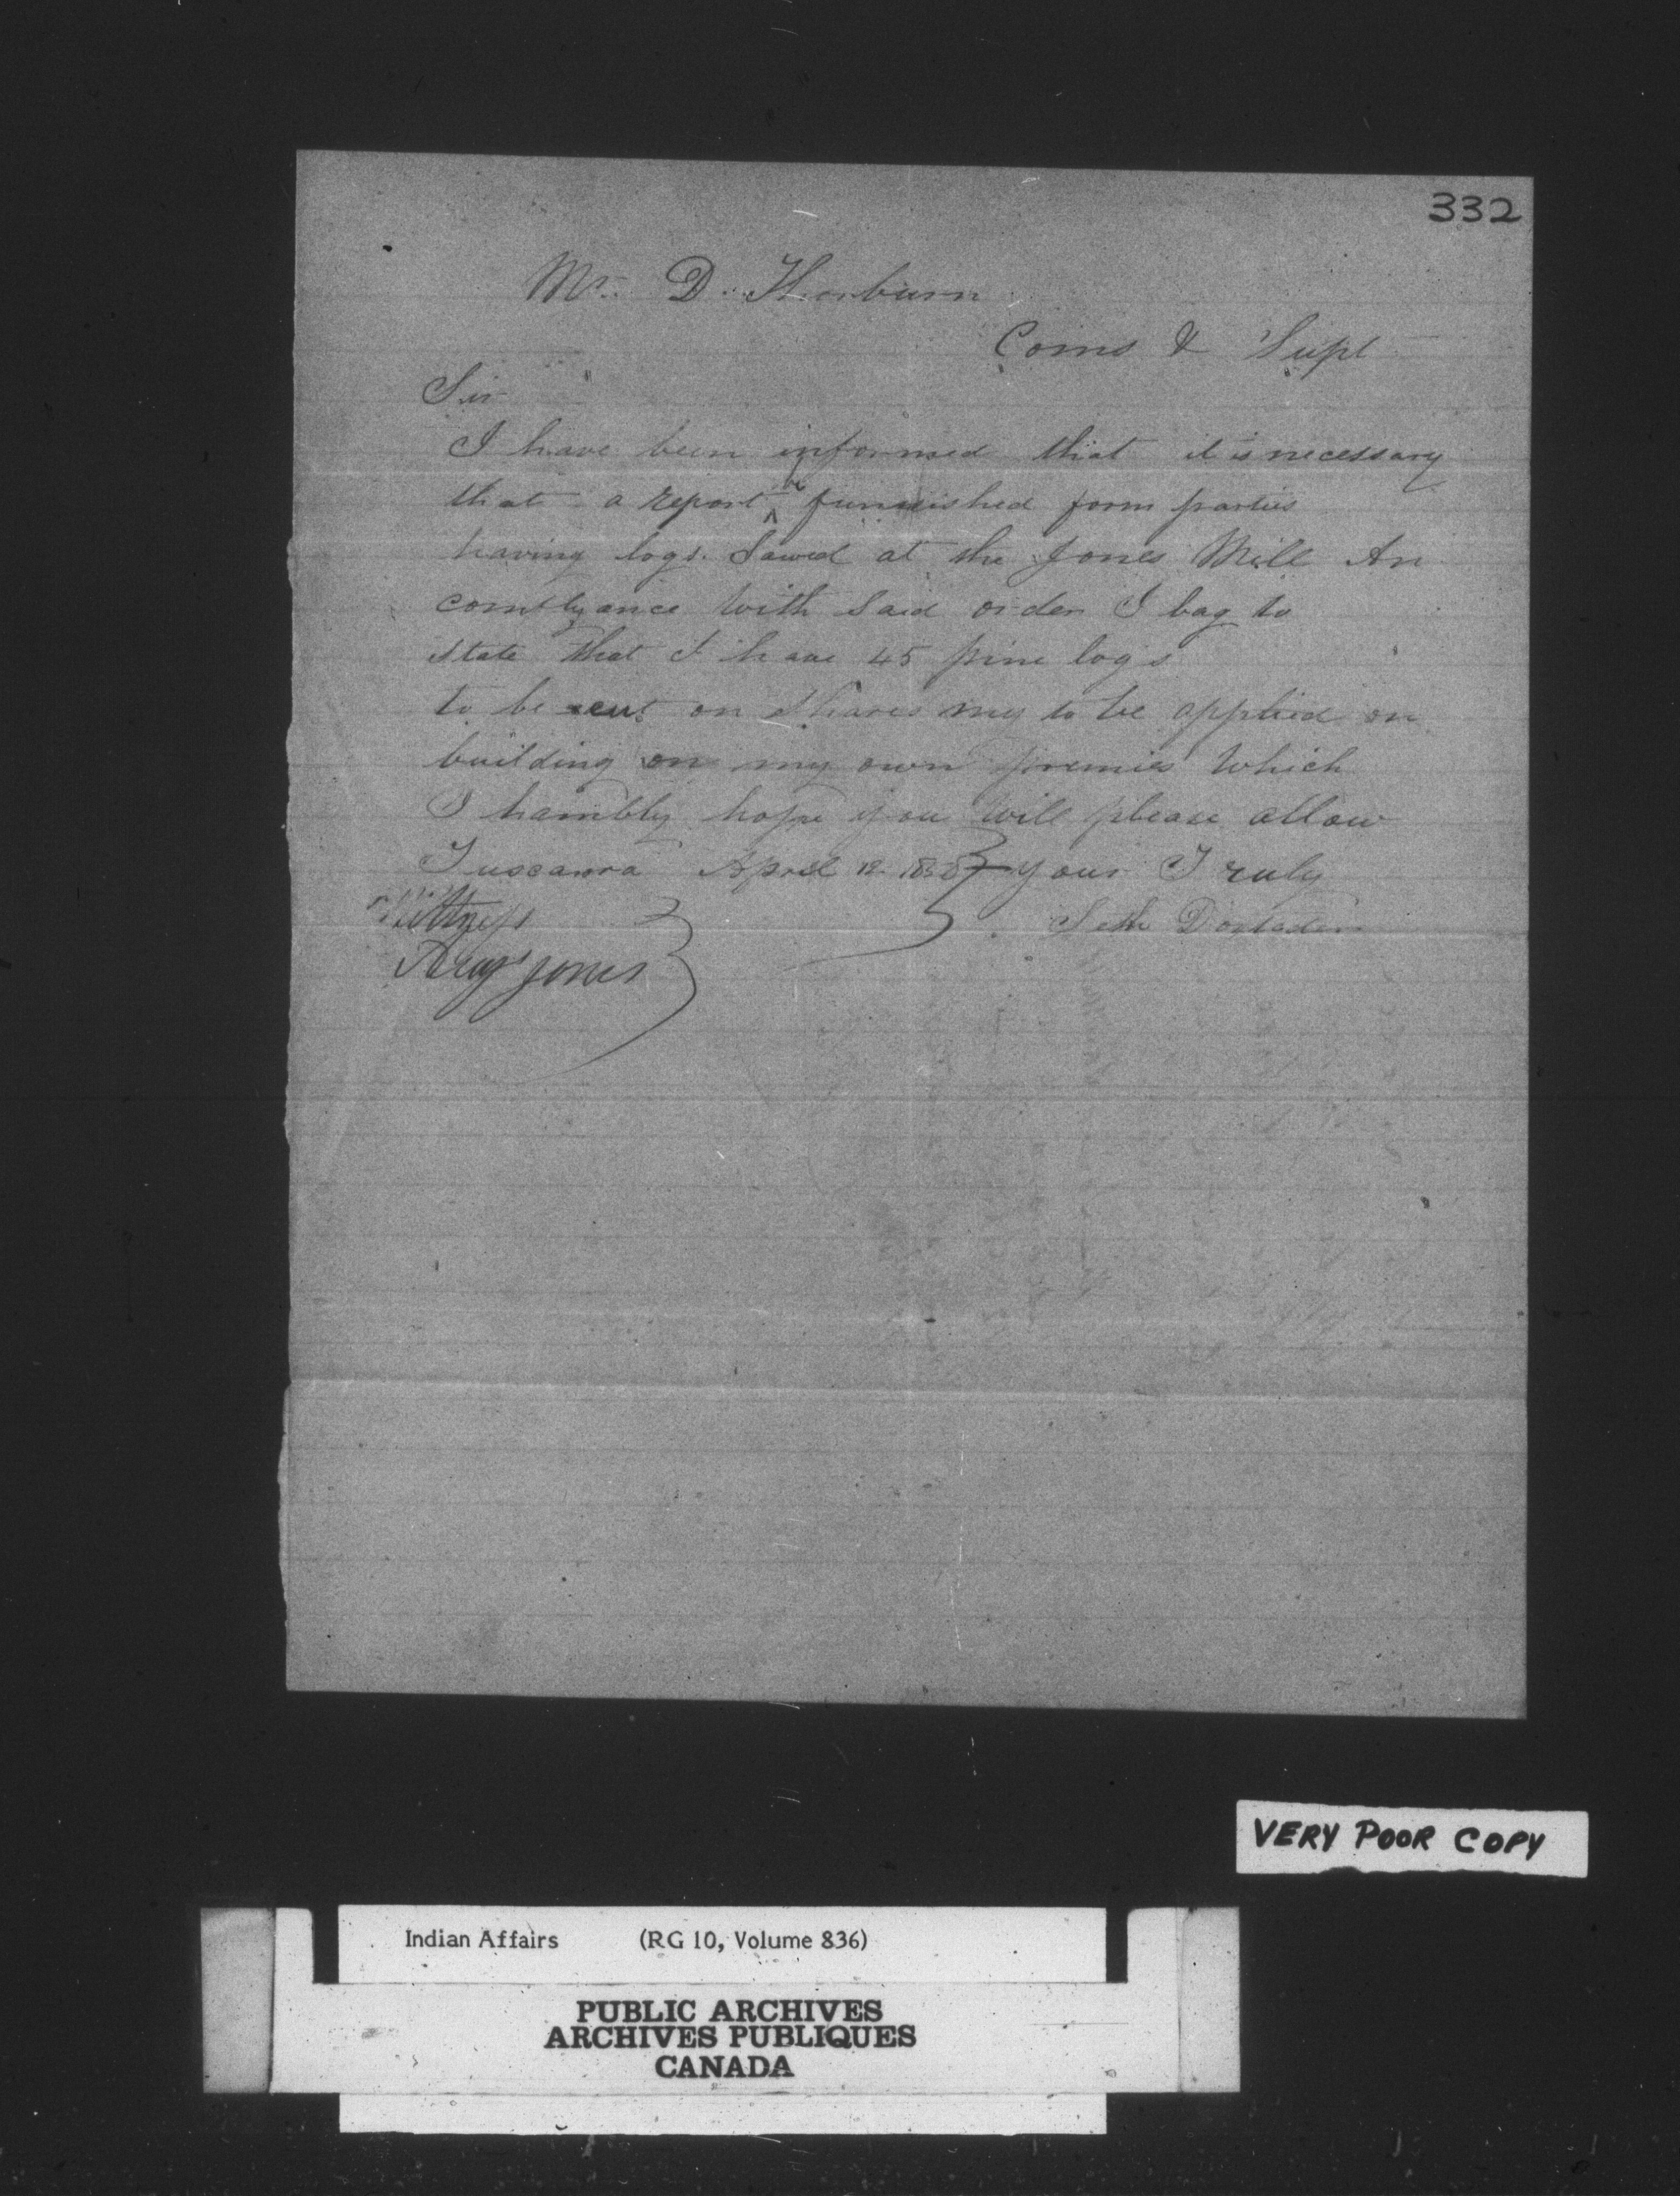 332
Mr. D. Thorburn
Coms & Supt
Sir
I have been informed that it is necessary
that a report furnished form parties
having logs Sawed at the Jones Mill An
comtlyance with Said order I bag to
state that I have 45 pine logs
to be cut on Shares my to be applied on
building on my own premies which
I hambly hope you will please allow
Tuscarora April 12 185 your Truly
Witness
Seth
Jones
VERY POOR COPY
Indian Affairs (RG 10, Volume 836)
PUBLIC ARCHIVES
ARCHIVES PUBLIQUES
CANADA